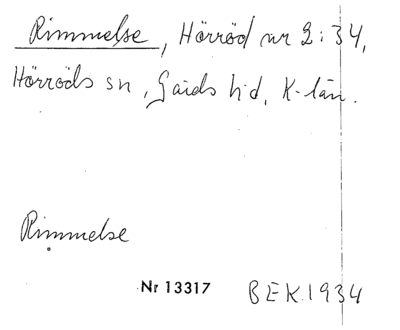 Rimmelse, Hörröd nr 2:34,
Hörröds sn, Gärds hd, K-län.
Rimmelse
Nr 13317 BEK 1934